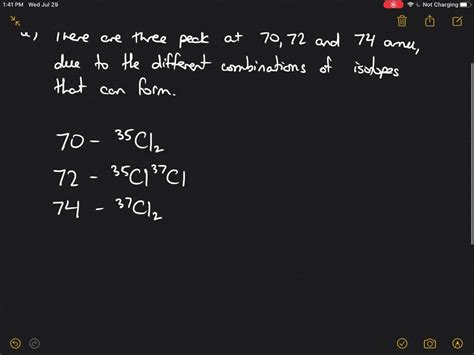 1:41 PM Wed Jul 29
Not Charging
There are three peak at 70, 72 and 74 amu,
due to the different combinations of isotopes
that can form.
70 - ³⁵Cl₂
72 - ³⁵Cl³⁷Cl
74 - ³⁷Cl₂